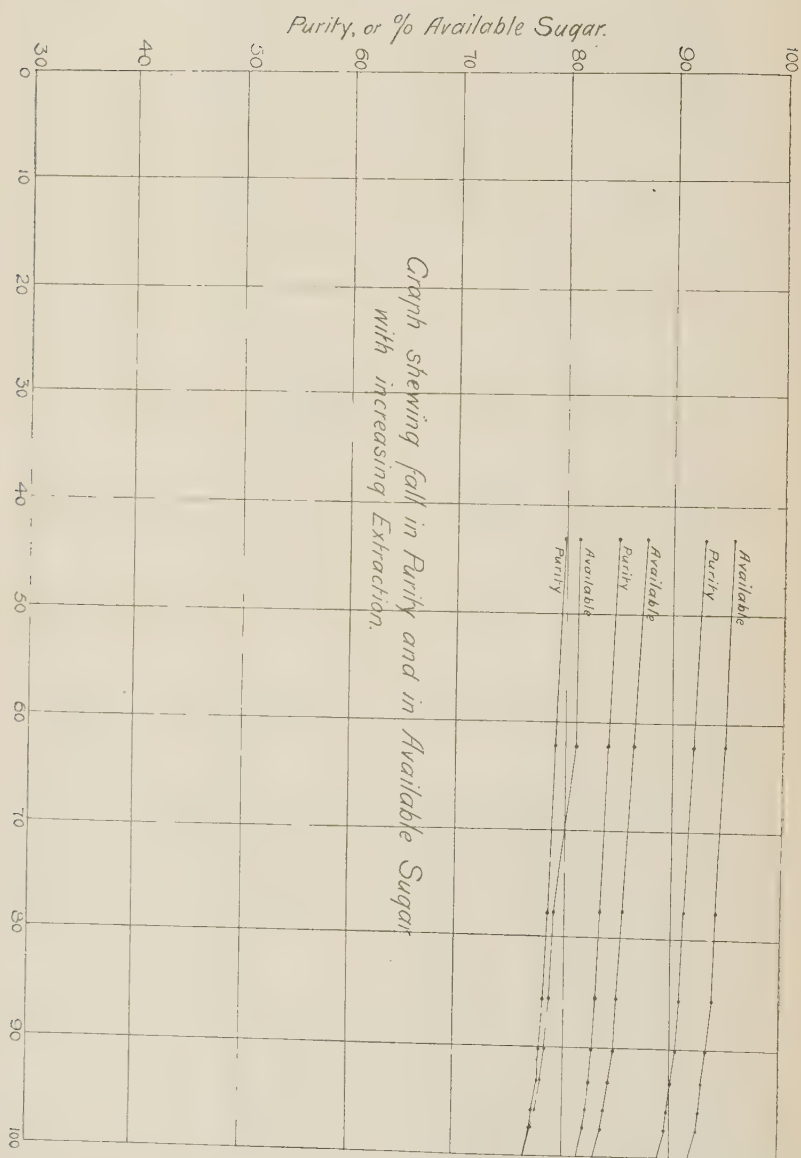 Purity, or % Available Sugar.
100
90
80
70
60
50
40
30
0
10
20
30
40
50
60
70
80
90
100
Graph shewing fall in Purity and in Available Sugar
with increasing Extraction.
Available
Purity
Available
Purity
Available
Purity